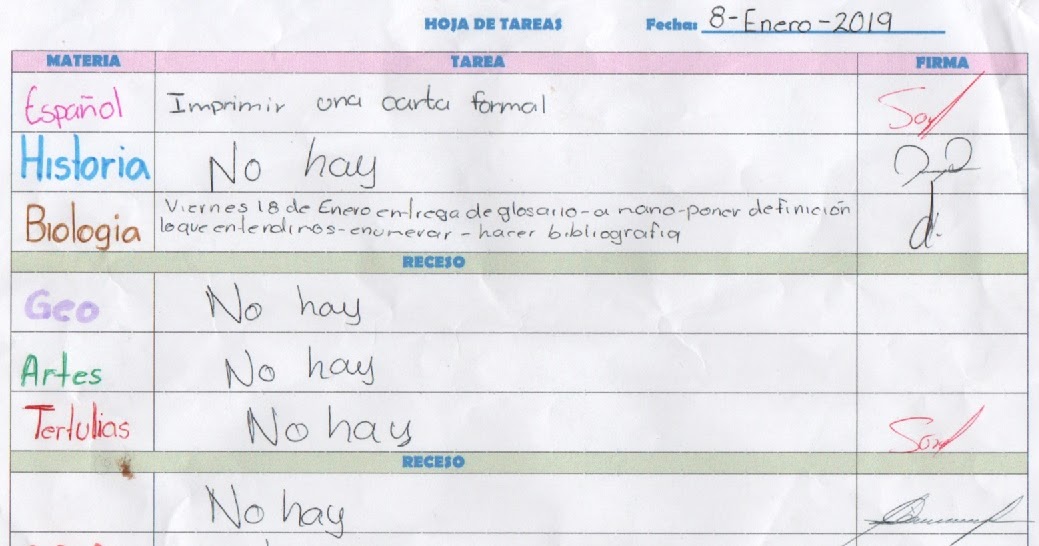 HOJA DE TAREAS Fecha: 8-Enero-2019
MATERIA TAREA FIRMA
Español Imprimir una carta formal
Historia No hay
Biologia Viernes 18 de Enero entrega de glosario-a mano-poner definición
loque entendimos-enumerar-hacer bibliografia
RECESO
Geo No hay
Artes No hay
Tertulias No hay
RECESO
No hay